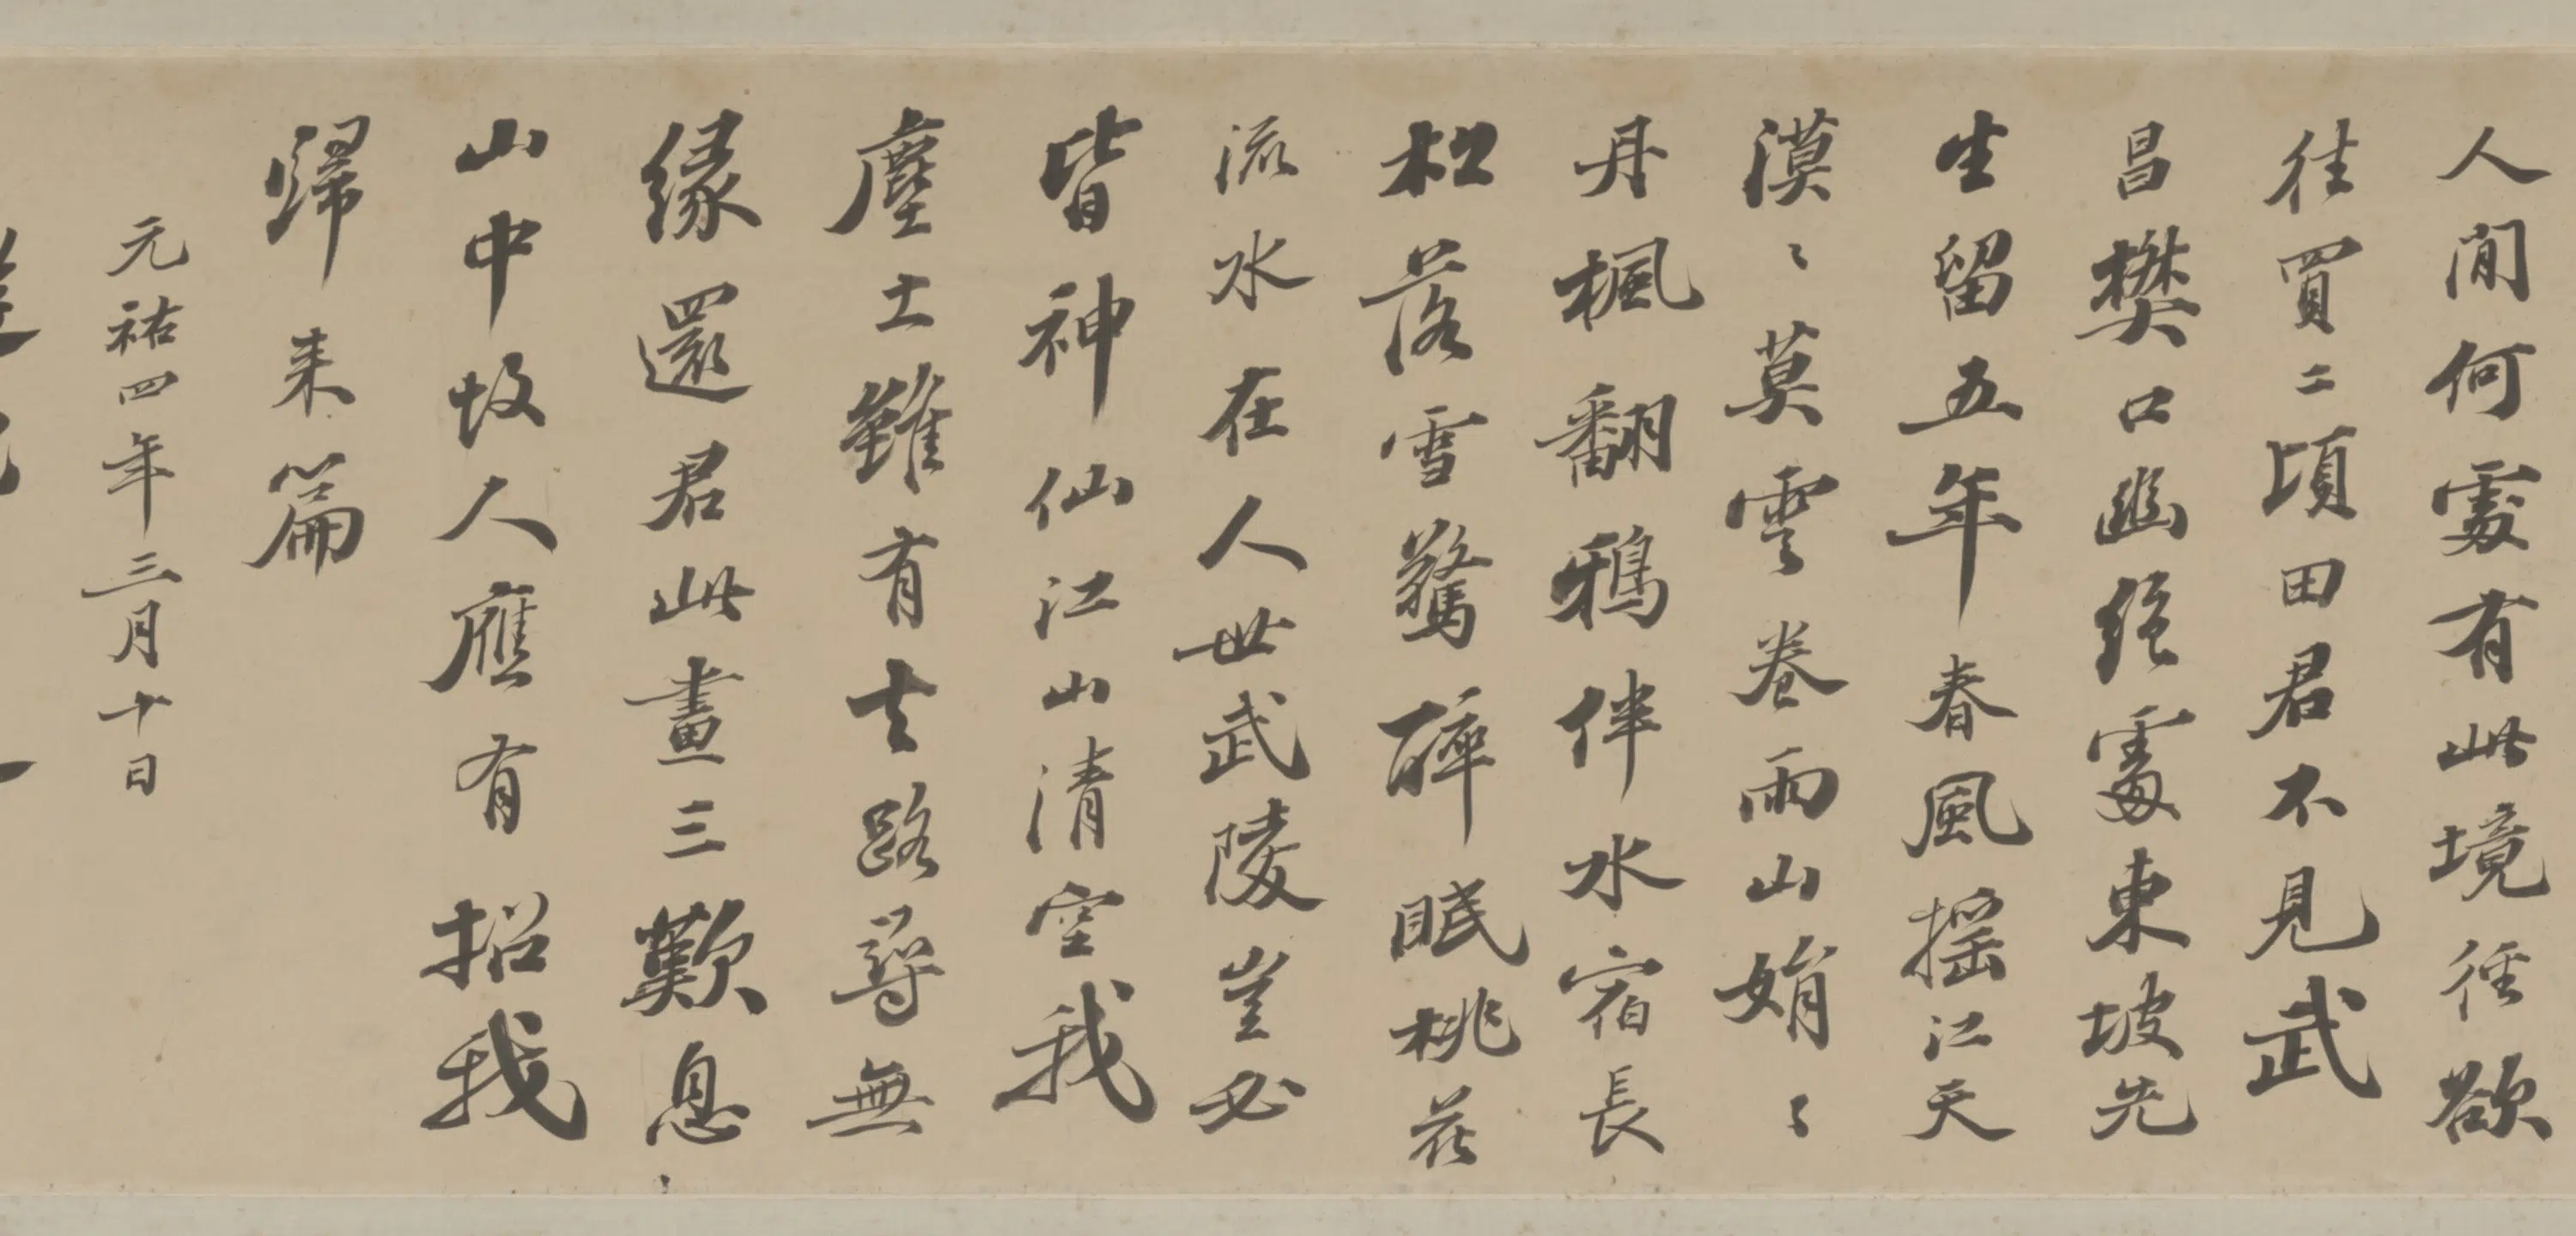 人間何處有此境徑欲
往買二頃田君不見武
昌樊口幽絕處東坡先
生留五年春風搖江天
漠〻莫雲卷雨山娟〻
丹楓翻鴉伴水宿長
松落雪驚醉眠桃花
流水在人世武陵豈必
皆神仙江山清空我
塵土雖有去路尋無
緣還君此畫三歎息
山中故人應有招我
歸來篇
元祐四年三月十日